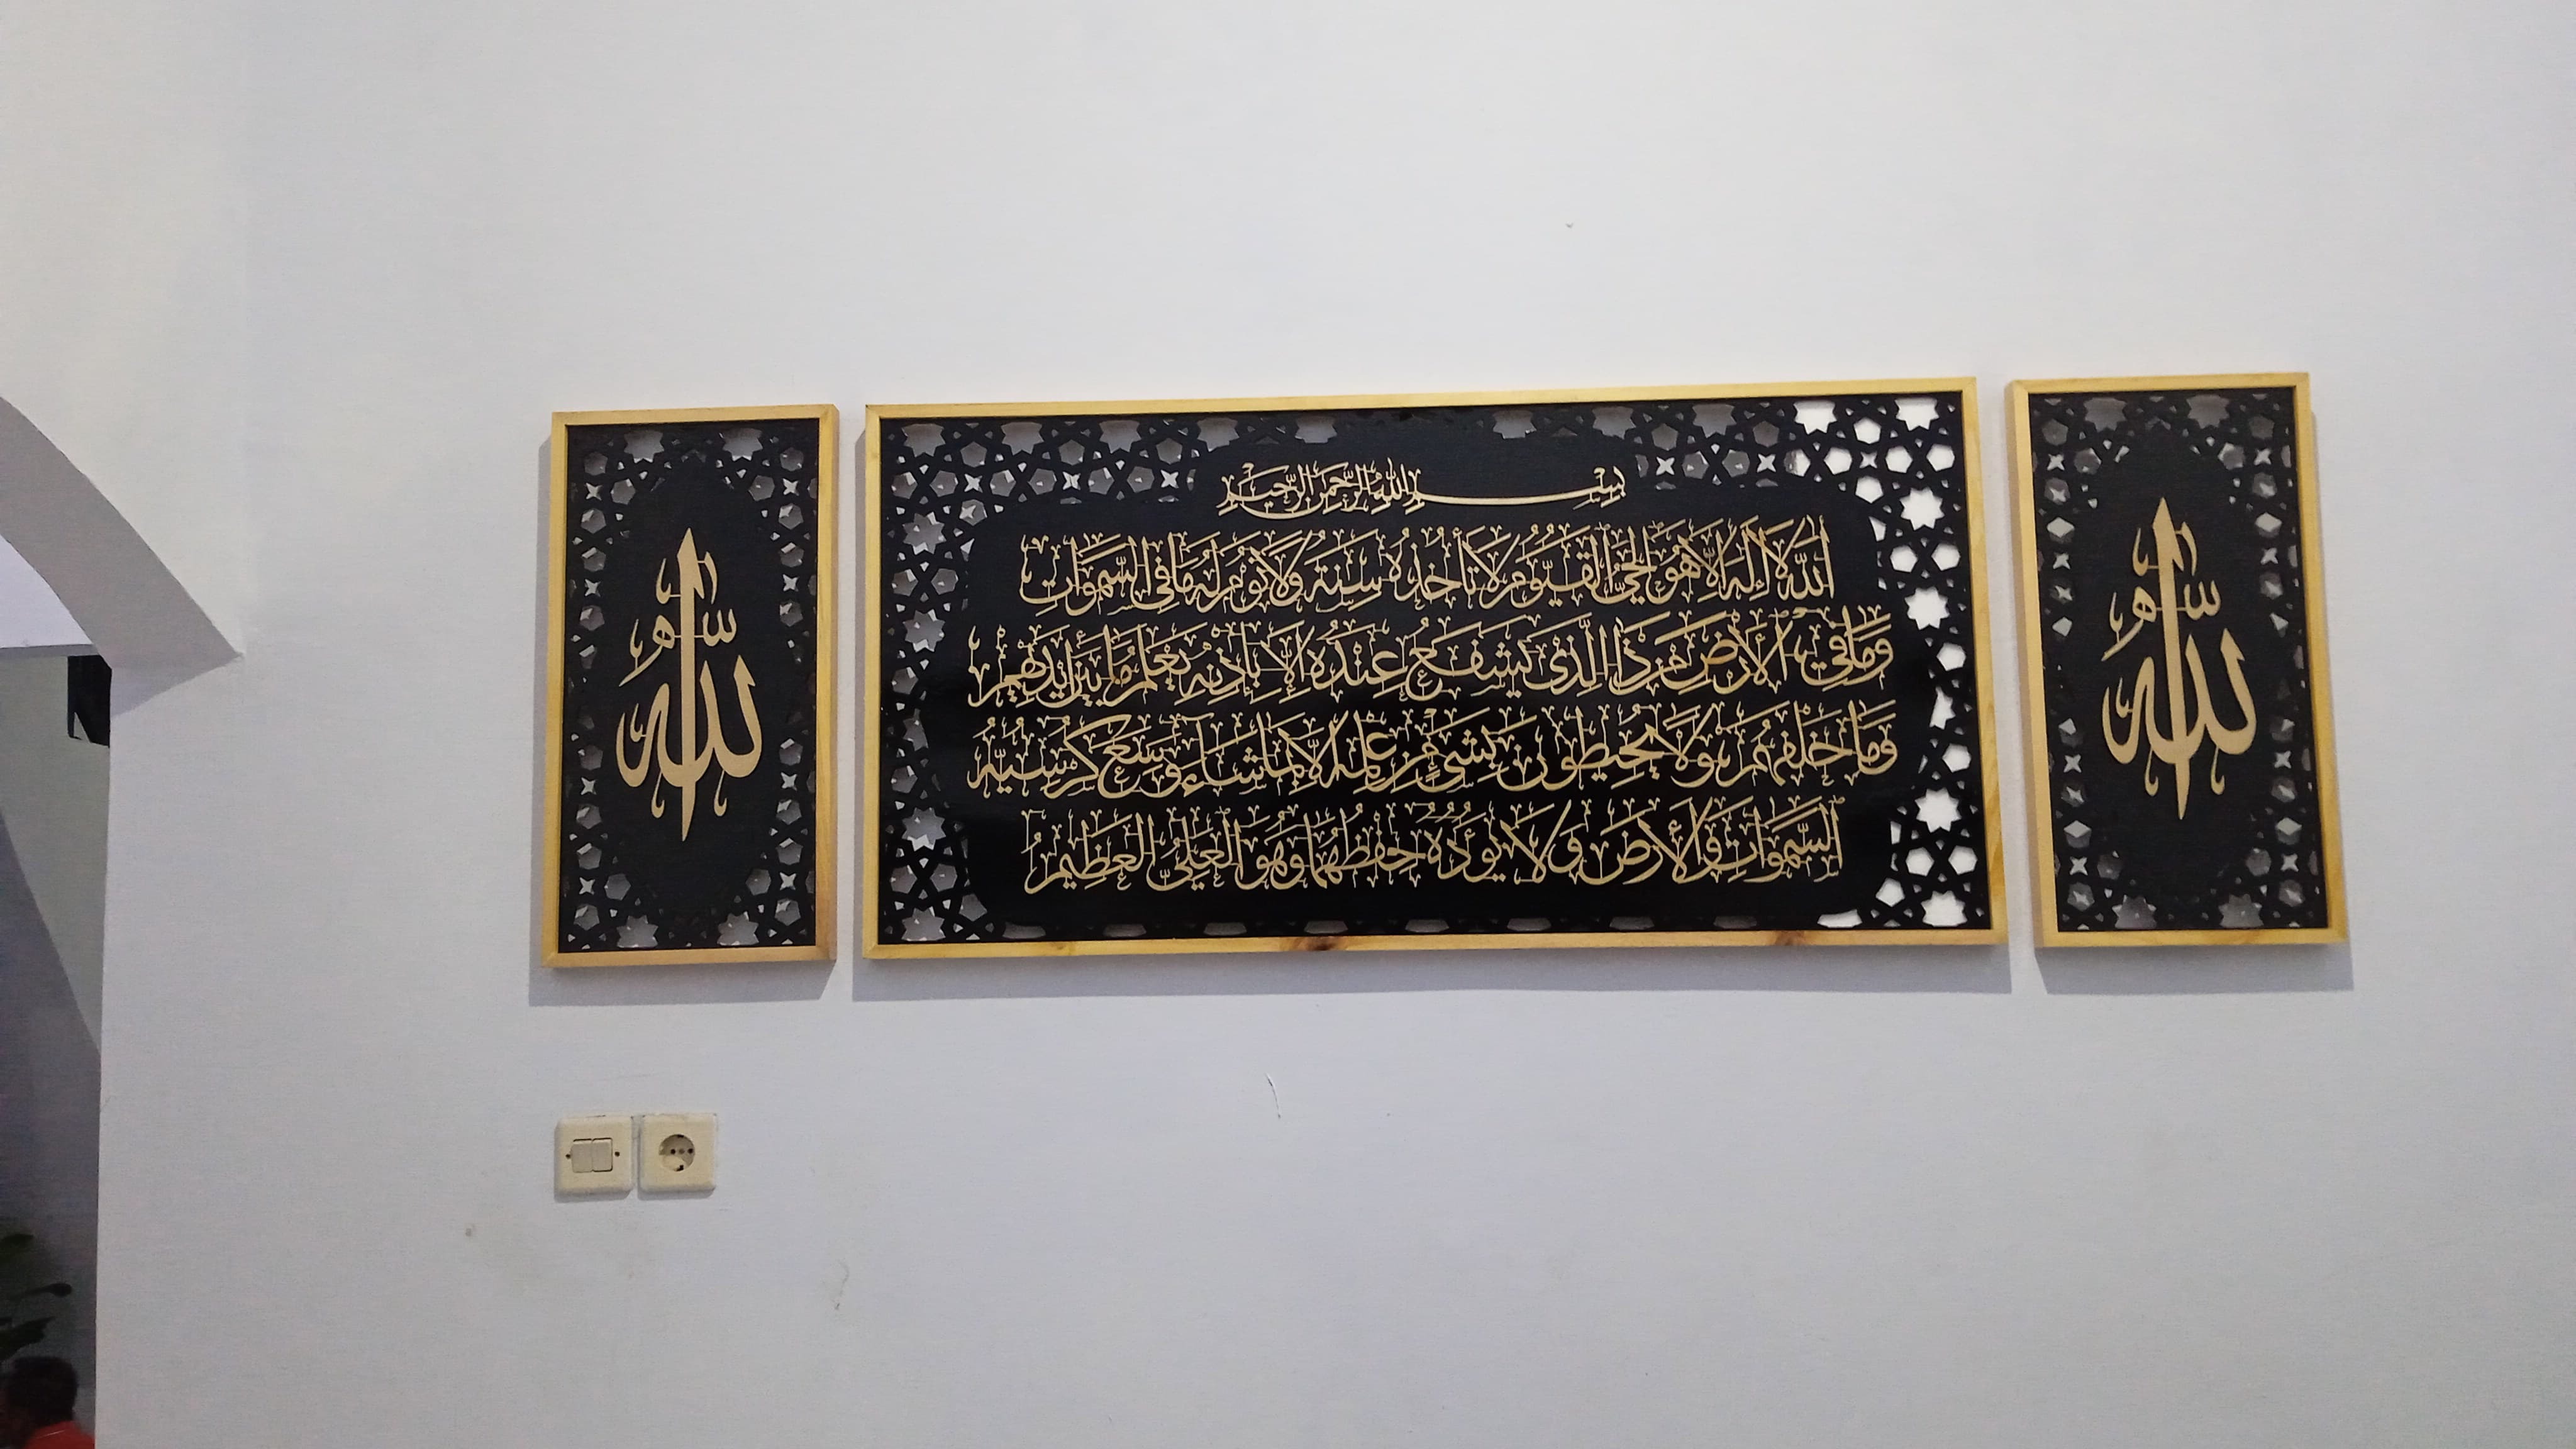 بِسْمِ اللهِ الرَّحْمٰنِ الرَّحِيْمِ
اَللهُ لَا إِلٰهَ إِلَّا هُوَ الْحَيُّ الْقَيُّوْمُ لَا تَأْخُذُهُ سِنَةٌ وَلَا نَوْمٌ لَهُ مَا فِي السَّمَوَاتِ
وَمَا فِي الْأَرْضِ مَنْ ذَا الَّذِي يَشْفَعُ عِنْدَهُ إِلَّا بِإِذْنِهِ يَعْلَمُ مَا بَيْنَ أَيْدِيْهِمْ
وَمَا خَلْفَهُمْ وَلَا يُحِيْطُوْنَ بِشَيْءٍ مِنْ عِلْمِهِ إِلَّا بِمَا شَاءَ وَسِعَ كُرْسِيُّهُ
السَّمَوَاتِ وَالْأَرْضَ وَلَا يَؤُدُهُ حِفْظُهُمَا وَهُوَ الْعَلِيُّ الْعَظِيْمُ
الله
الله